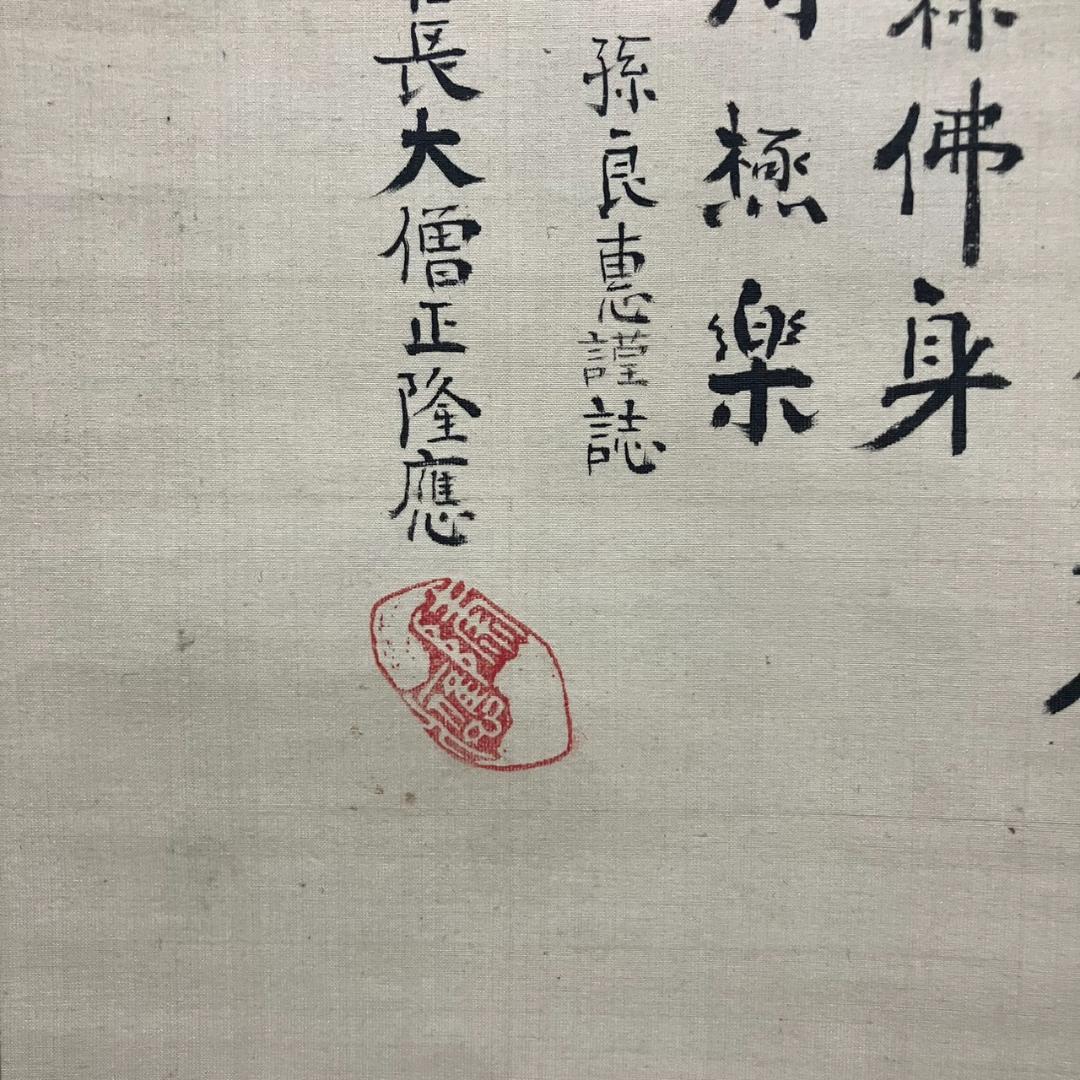 佛身
極樂
孫良惠謹誌
長大僧正隆應